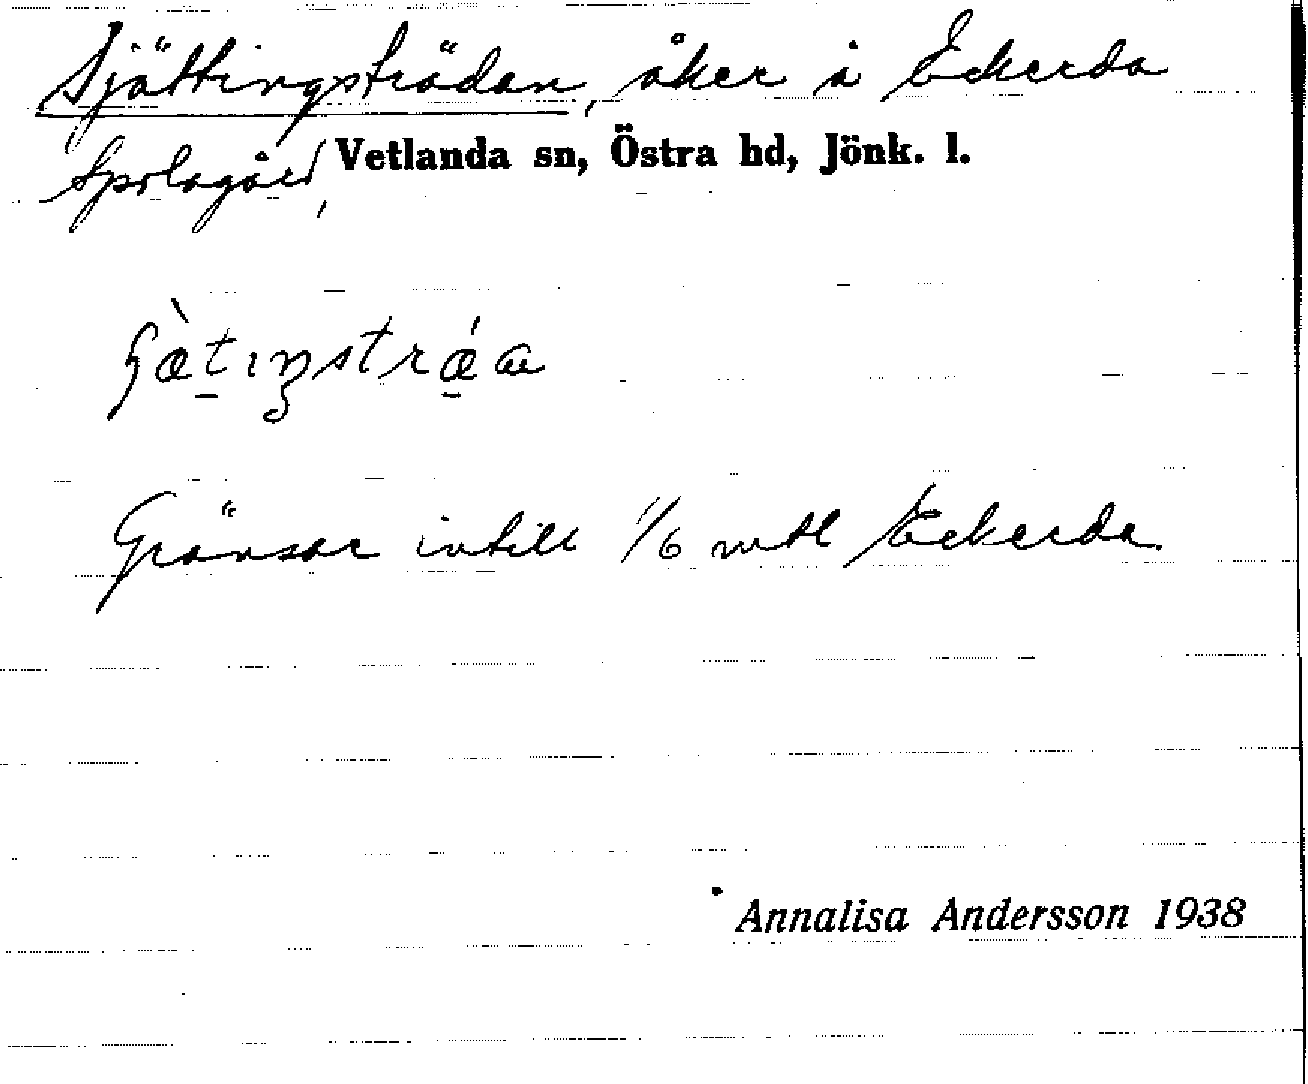 Sjättingsträdan, åker å Eckerda
Spolagård,
Vetlanda sn, Östra hd, Jönk. l.
Gränsar intill 1/6 mtl Eckerda
Annalisa Andersson 1938